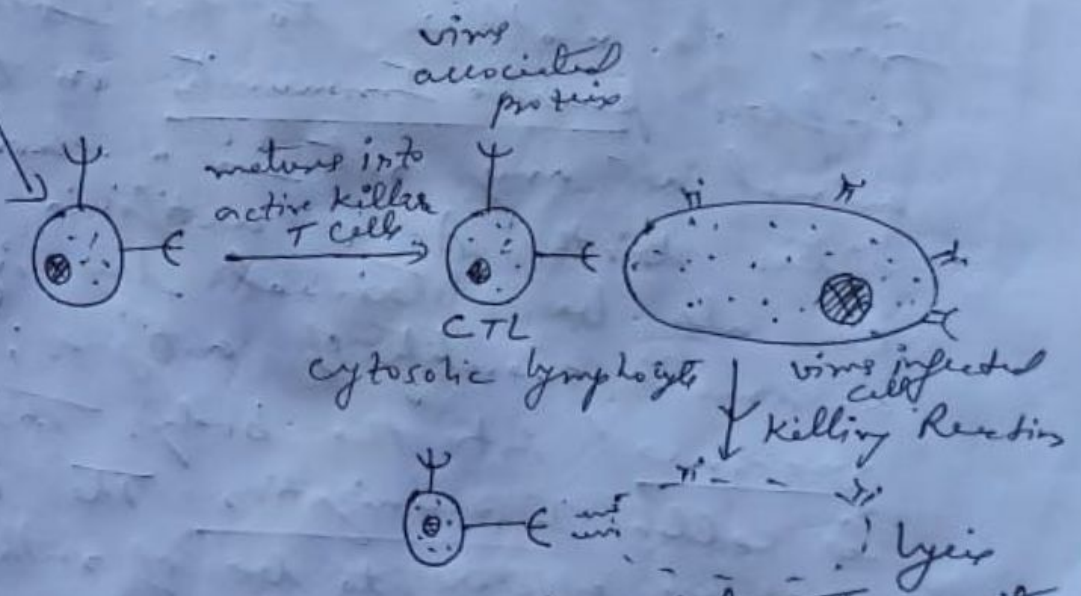 virus
associated
protein
matures into
active killer
T cells
CTL
cytosolic lymphocyte
virus infected
cell
Killing Reaction
Lysis